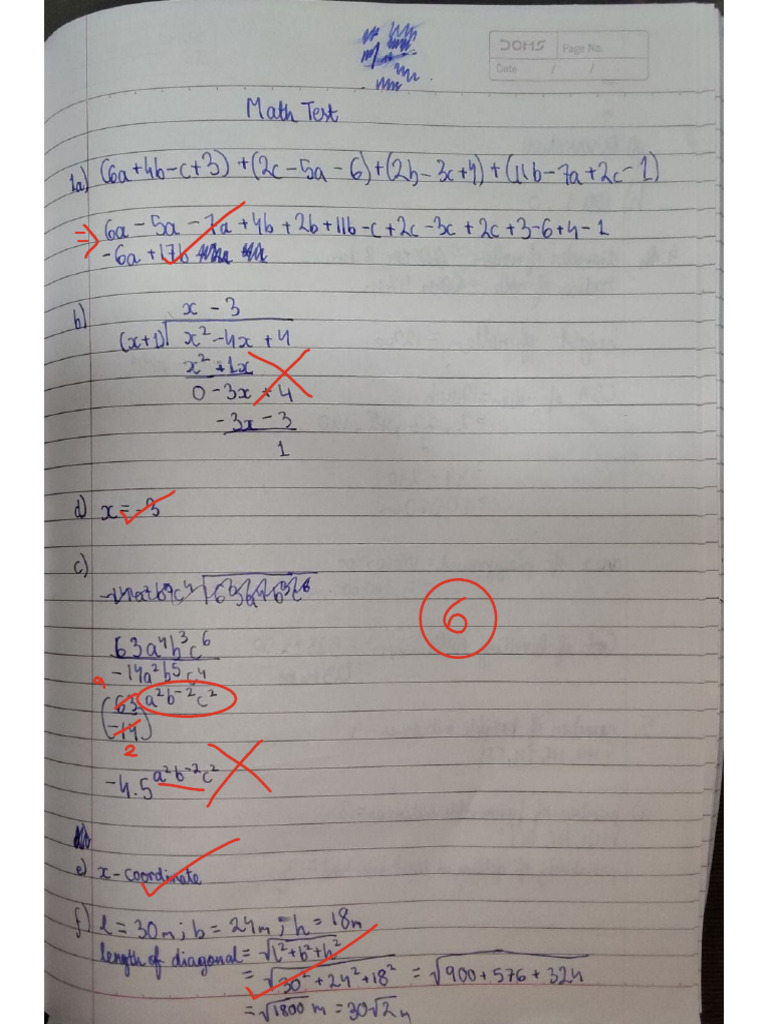 DOMS Page No.
Date / /
Math Test
1a) (6a+4b-c+3) +(2c-5a-6)+(2b-3c+4)+(11b-7a+2c-1)
⇒ 6a-5a-7a+4b+2b+11b-c+2c-3c+2c+3-6+4-1
-6a+17b
b) x-3
(x+1) x²-4x+4
x²+1x
0-3x+4
-3x-3
1
d) x=-3
c)
63a⁴b³c⁶
-14a²b⁵c⁴
9
(63 a²b⁻²c²
-14)
2
-4.5 a²b⁻²c²
6
e) x-coordinate
f) l=30m; b=24m; h=18m
length of diagonal = √l²+b²+h²
= √30²+24²+18² = √900+576+324
= √1800 m = 30√2m